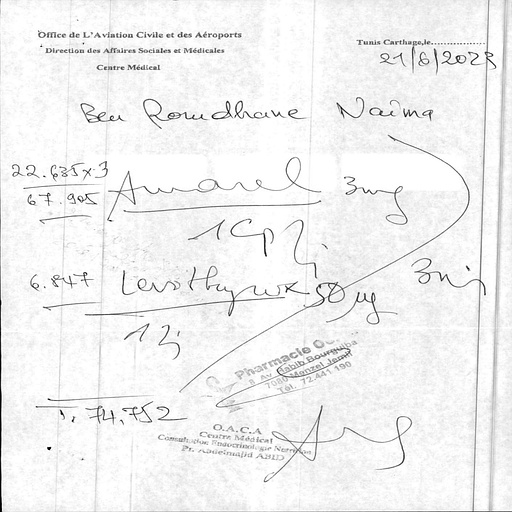 Office de L'Aviation Civile et des Aéroports
Direction des Affaires Sociales et Médicales
Centre Médical
Tunis Carthage,le................
21/6/2023
Ben Romdhane Naïma
22.635x3
67.905
Amarel 3mg
1cp/j
6.847
Levothyrox 50 µg
3m
1/j
Pharmacie
8 Av Habib Bourguiba
7080 Menzel Jemil
Tél. 72.441 190
T. 74,752
O.A.C.A
Centre Médical
Consultation Endocrinologie Nutrition
Pr. Abdelmajid ABID